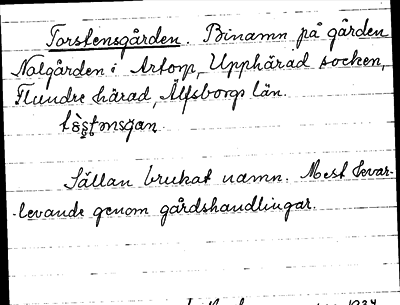 Torstensgården. Binamn på gården
Nolgården i Artorp, Upphärad socken,
Flundre härad, Älfsborgs län.
Sällan brukat namn. Mest kvar-
-levande genom gårdshandlingar.